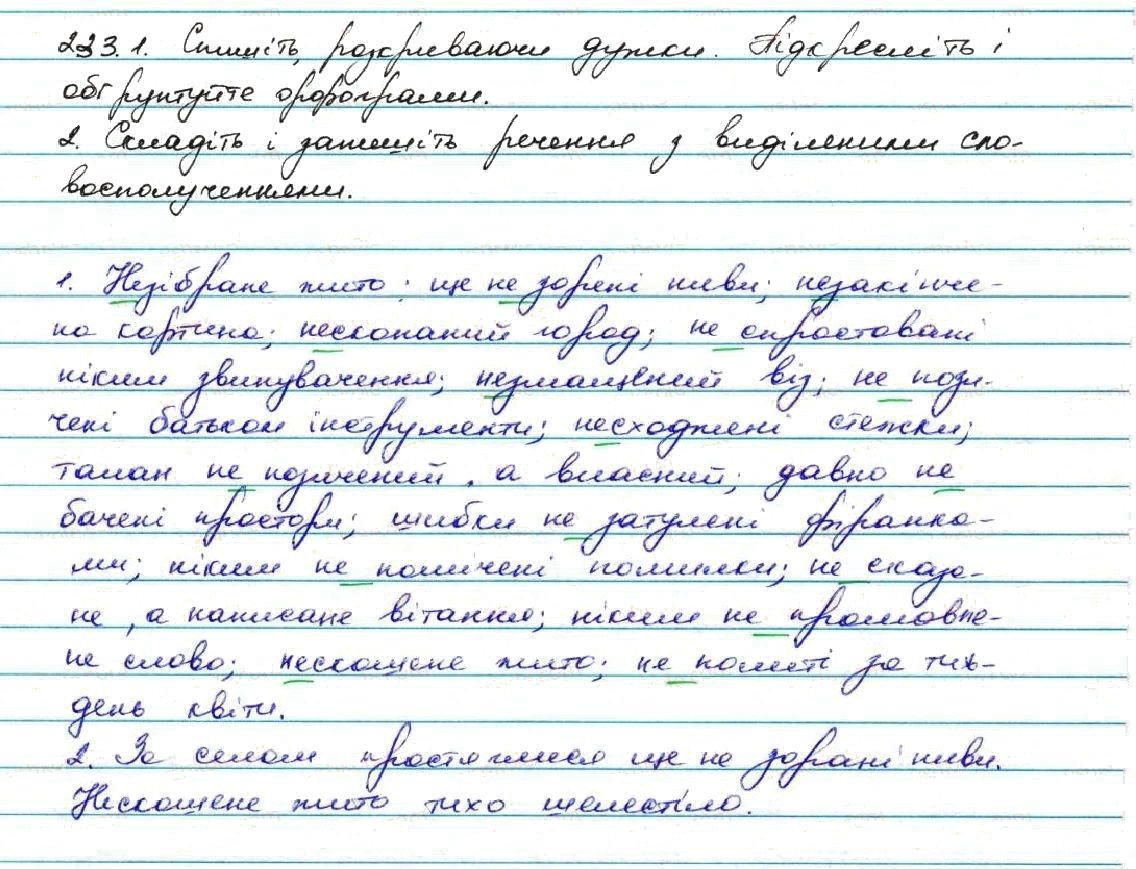 223.1. Спишіть, розкриваючи дужки. Підкресліть і
обґрунтуйте орфограми.
2. Складіть і запишіть речення з виділеними сло-
восполученнями.
1. Незібране жито; ще не зорані ниви; незакінче-
на картина; нескопаний город; не спростовані
ніким звинувачення; незмащений віз; не пози-
чені батьком інструменти; несходжені стежки;
талан не позичений, а власний; давно не
бачені простори; шибки не затулені фіранка-
ми; ніким не помічені помилки; не сказа-
не, а написане вітання; ніким не промовле-
не слово; нескошене жито; не политі за тиж-
день квіти.
2. За селом простяглися ще не зорані ниви.
Нескошене жито тихо шелестіло.